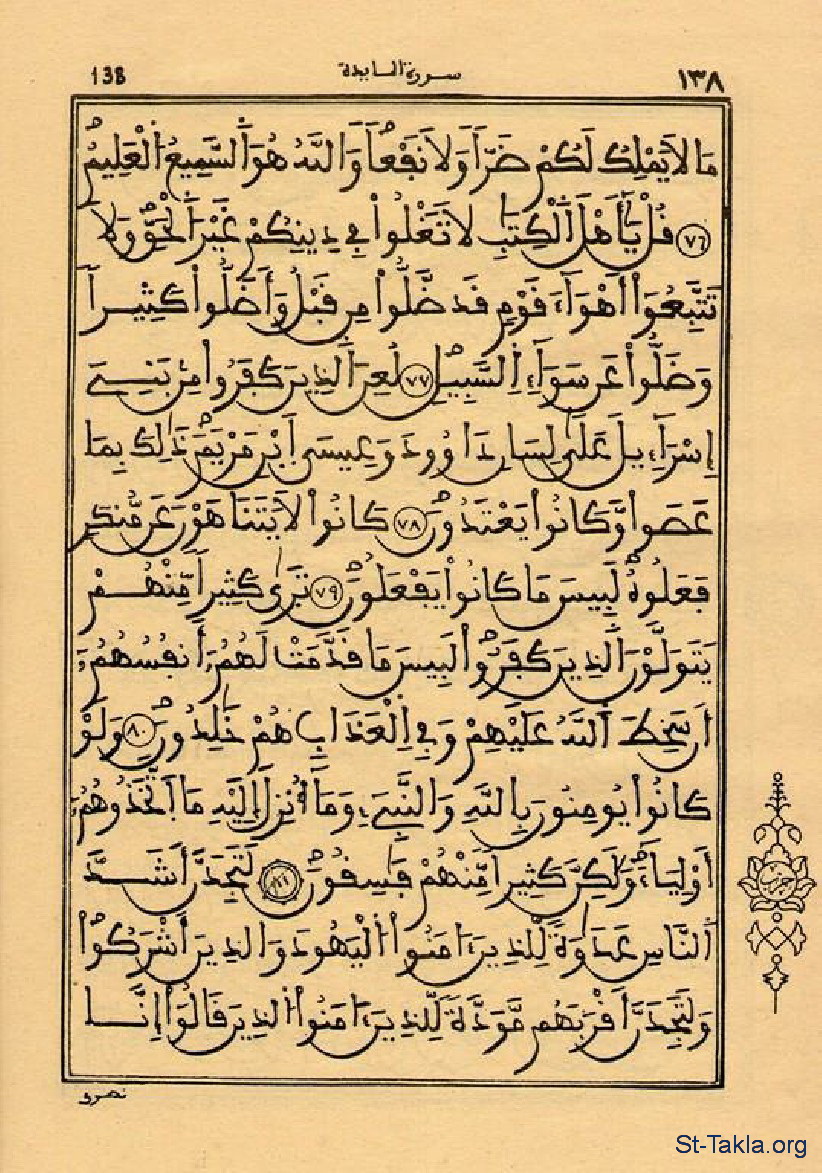 138 سورة المايدة ١٣٨
مَا لَا يَمْلِكُ لَكُمْ ضَرّاٗ وَلَا نَفْعاٗ وَاللَّهُ هُوَ اَ۬لسَّمِيعُ اُ۬لْعَلِيمُ
٧٦ قُلْ يَٰٓأَهْلَ اَ۬لْكِتَٰبِ لَا تَغْلُواْ فِے دِينِكُمْ غَيْرَ اَ۬لْحَقِّ وَلَا
تَتَّبِعُوٓاْ أَهْوَآءَ قَوْمٖ قَد ضَّلُّواْ مِن قَبْلُ وَأَضَلُّواْ كَثِيراٗ
وَضَلُّواْ عَن سَوَآءِ اِ۬لسَّبِيلِ ٧٧ لُعِنَ اَ۬لذِينَ كَفَرُواْ مِنۢ بَنِےٓ
إِسْرَآءِيلَ عَلَىٰ لِسَانِ دَاوُۥدَ وَعِيسَى اَ۪بْنِ مَرْيَمَ ذَٰلِكَ بِمَا
عَصَواْ وَّكَانُواْ يَعْتَدُونَ ٧٨ كَانُواْ لَا يَتَنَاهَوْنَ عَن مُّنكَرٖ
فَعَلُوهُ لَبِيسَ مَا كَانُواْ يَفْعَلُونَ ٧٩ تَرَىٰ كَثِيراٗ مِّنْهُمْ
يَتَوَلَّوْنَ اَ۬لذِينَ كَفَرُواْ لَبِيسَ مَا قَدَّمَتْ لَهُمُۥٓ أَنفُسُهُمُۥٓ
أَن سَخِطَ اَ۬للَّهُ عَلَيْهِمْ وَفِے اِ۬لْعَذَابِ هُمْ خَٰلِدُونَ ٨٠ وَلَوْ
كَانُواْ يُومِنُونَ بِاللَّهِ وَالنَّبِےٓءِ وَمَآ أُنزِلَ إِلَيْهِ مَا اَ۪تَّخَذُوهُمُۥٓ
أَوْلِيَآءَ وَلَٰكِنَّ كَثِيراٗ مِّنْهُمْ فَٰسِقُونَ ٨١ لَتَجِدَنَّ أَشَدَّ
اَ۬لنَّاسِ عَدَٰوَةٗ لِّلذِينَ ءَامَنُواْ اُ۬لْيَهُودَ وَالذِينَ أَشْرَكُواْ
وَلَتَجِدَنَّ أَقْرَبَهُم مَّوَدَّةٗ لِّلذِينَ ءَامَنُواْ اُ۬لذِينَ قَالُوٓاْ إِنَّا
نصرى
St-Takla.org